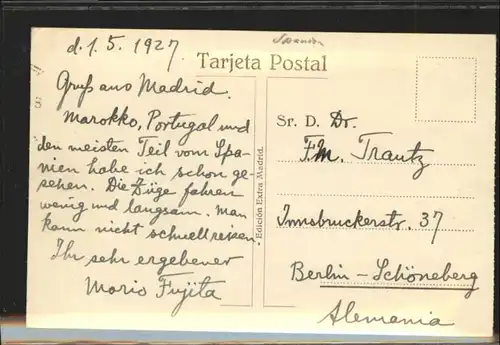 Spanien
d. 1. 5. 1927.
Tarjeta Postal
Gruß aus Madrid.
Marokko, Portugal und
den meisten Teil vom Spa-
nien habe ich schon ge-
sehen. Die Züge fahren
wenig und langsam. Man
kann nicht schnell reisen
Ihr sehr ergebener
Morio Fujita
Edición Extra Madrid.
Sr. D. Dr.
Fr. M. Trautz
Innsbruckerstr. 37
Berlin-Schöneberg
Alemania